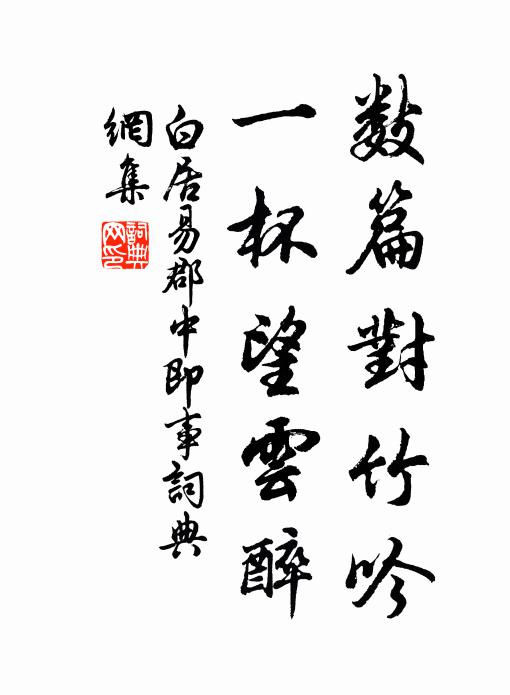 数篇對竹吟
一杯望雲醉
白居易郡中即事詞典
網集
詞典網印